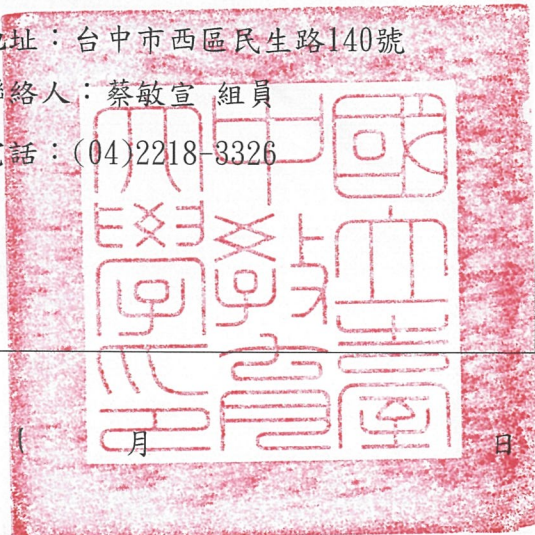 址：台中市西區民生路140號
絡人：蔡敏宣 組員
話：(04)2218-3326
國立臺
中教育
大學印
月 日